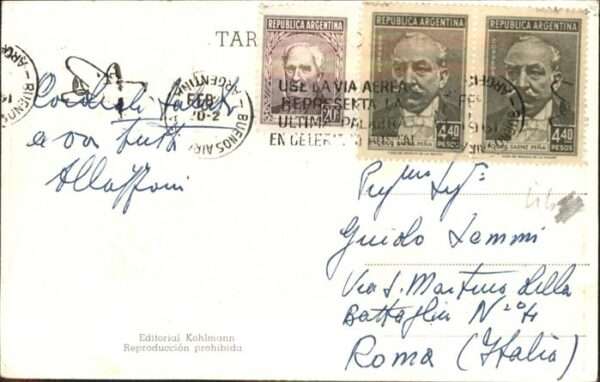 TAR
REPUBLICA ARGENTINA
REPUBLICA ARGENTINA
REPUBLICA ARGENTINA
20 C
4.40 PESOS
4.40 PESOS
ROQUE SAENZ PEÑA
ROQUE SAENZ PEÑA
BUENOS AIRES
ARGENTINA
FEB
USE LA VIA AEREA
REPRESENTA LA
ULTIMA PALABRA
EN CELERIDAD POSTAL
Cordiali saluti
a voi tutti
Guido
Via S. Martino della
Battaglia N° 4
Roma (Italia)
Editorial Kohlmann
Reproducción prohibida